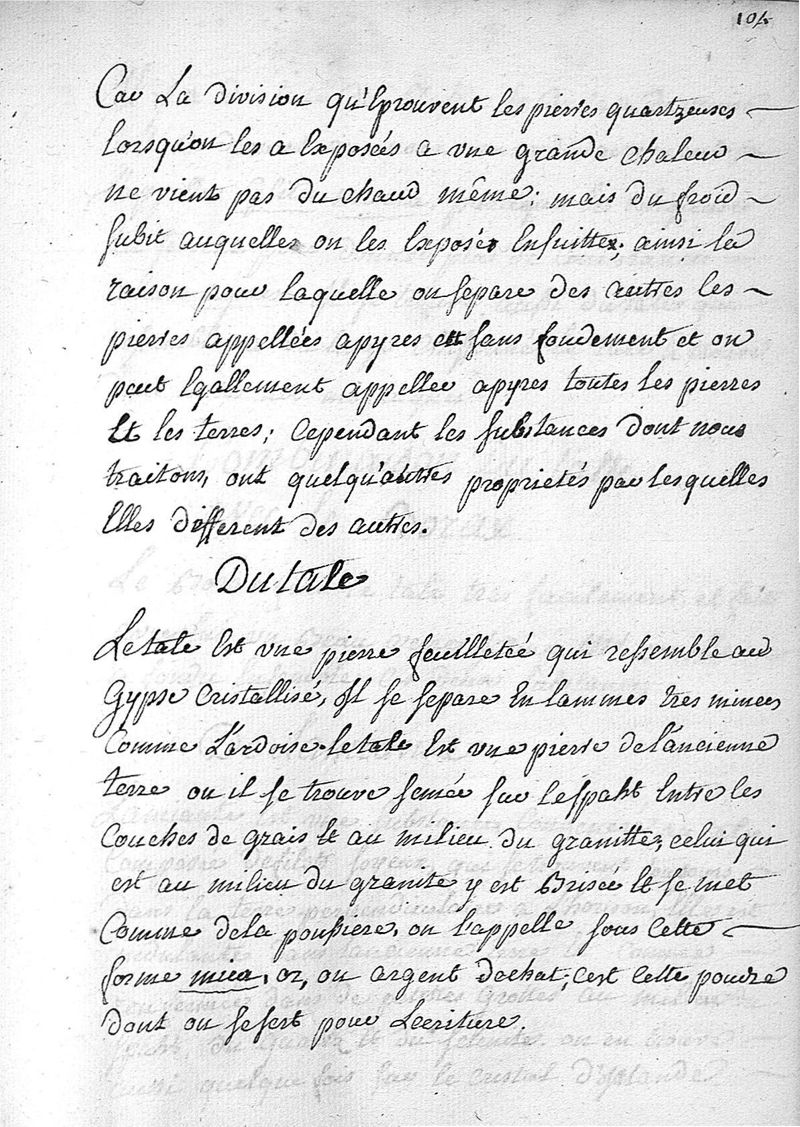 104
Car La division qu'Eprouvent les pierres quartzeuses
lorsqu'on les a Exposées a vne grande chaleur
ne vient pas du chaud même; mais du froid
subit auquelles on les Expose Ensuitte; ainsi la
raison pour laquelle on separe des autres les
pierres appellées apyres est sans fondement et on
peut Egallement appeller apyres toutes les pierres
Et les terres; Cependant les substances dont nous
traitons, ont quelqu'autres proprietés par lesquelles
Elles different des autres.
Du talc
Le talc Est vne pierre feuilleteé qui ressemble au
Gypse Cristallisé, Il se separe En lammes tres minces
Comme L'ardoise. le talc Est vne pierre de l'ancienne
terre ou il se trouve semée sur le spaht Entre les
Couches de grais Et au milieu du granitte, celui qui
est au milieu du granite y est Brisée Et se met
Comme de la poussiere, on l'appelle sous Cette
forme mica, or, ou argent de chat; c'est Cette poudre
dont on se sert pour L'ecriture.